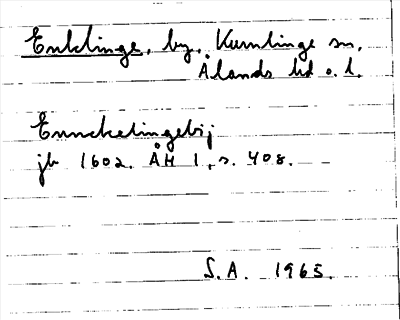 Enklinge, by, Kumlinge sn,
Ålands hd o. l.
Ennckelingebij
jb 1602. ÅH 1, s. 408.
S.A. 1965.